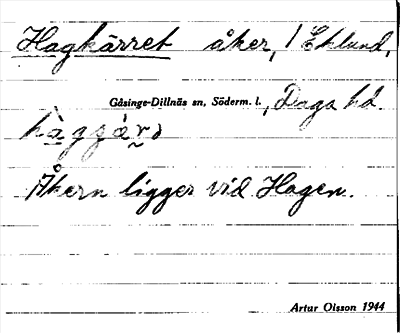 Hagkärret åker, / Eklund,
Gåsinge-Dillnäs sn, Söderm. l., Daga hd.
Åkern ligger vid Hagen.
Artur Olsson 1944